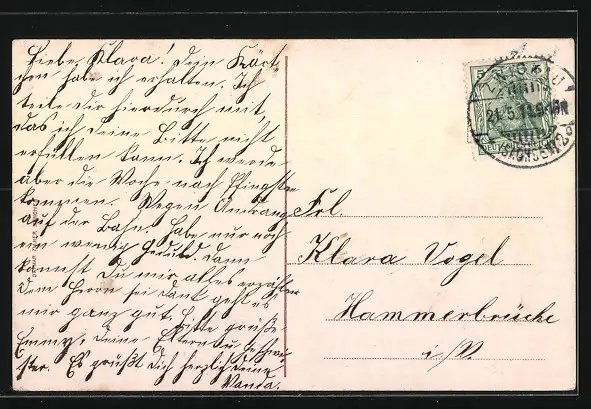 Liebe Klara! Dein Kärt-
chen habe ich erhalten. Ich
teile dir hierdurch mit,
das ich deine Bitte nicht
erfüllen kann. Ich werde
aber die Woche nach Pfingsten
kommen. Wegen Andrang
auf der Bahn. Habe nur noch
ein wenig Geduld. Dann
kannst Du mir alles erzählen
Dem Herrn sei dank geht es
mir ganz gut. Bitte grüße
Emmy, deine Eltern u. Geschwi-
ster. Es grüßt Dich herzlich deine
Wanda.
Frl.
Klara Vogel
Hammerbrücke
i/V.
ZWICKAU
21.5.
(SACHSEN) 2
DEUTSCHES